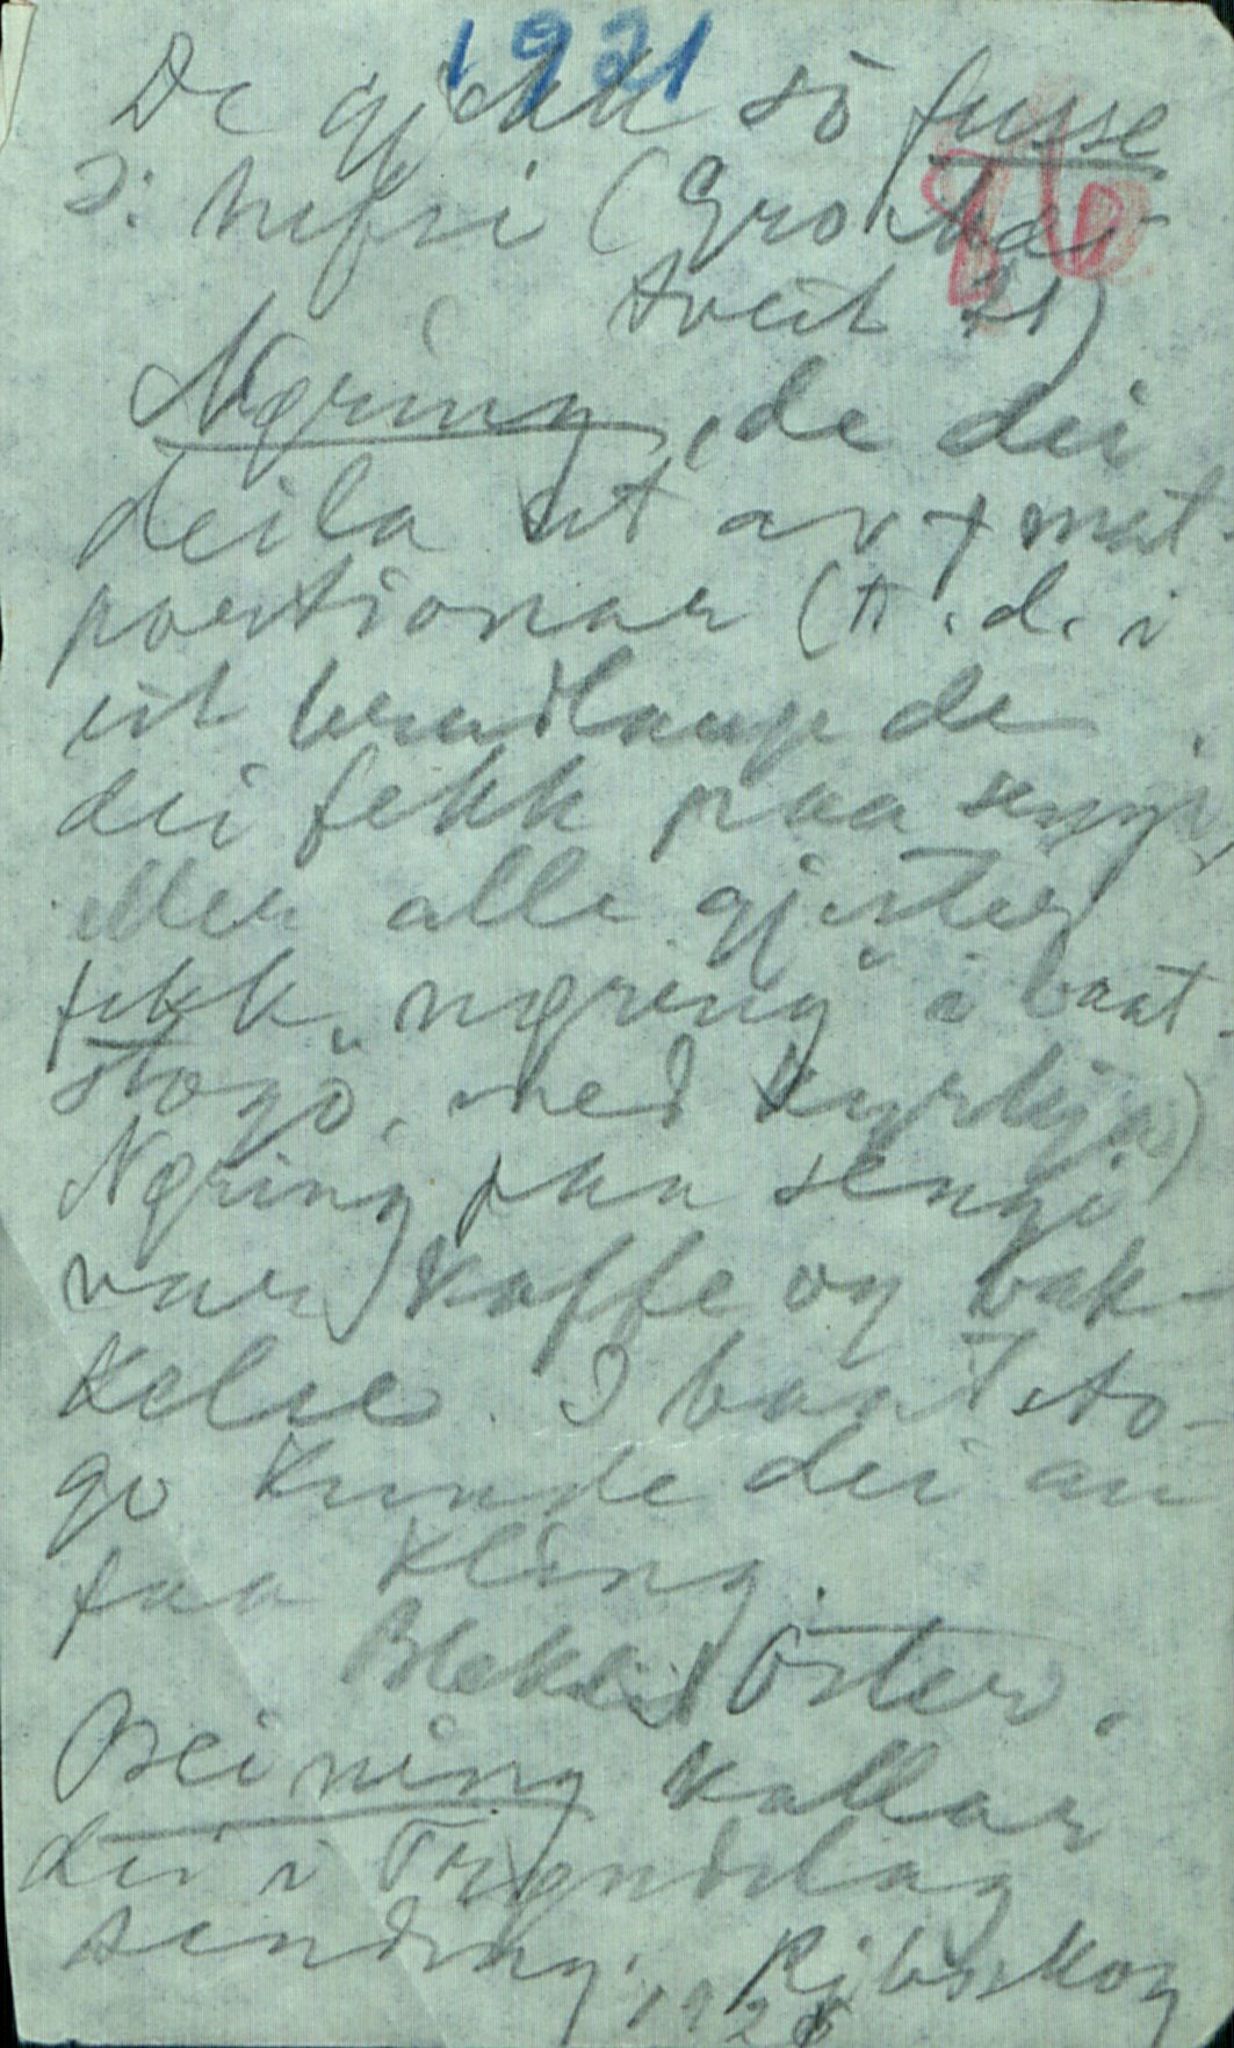 1921
De gjekk så fusse
ɔ: ufsi (Gro
tveit 21)
Nøring, de dei
deila ut av mat-
portionar (t. d. i
eit brudlaup de
dei fekk paa sengi,
eller alle gjester
fekk "nøring" i baat-
stogo, med Kyrkja)
Nøring paa sengi
var kaffe og bak-
kelse. I baatsto-
go kunde dei au
faa kling.
Øster.
Beining kallar
dei i Trøndelag
sending. Ribsskog
192